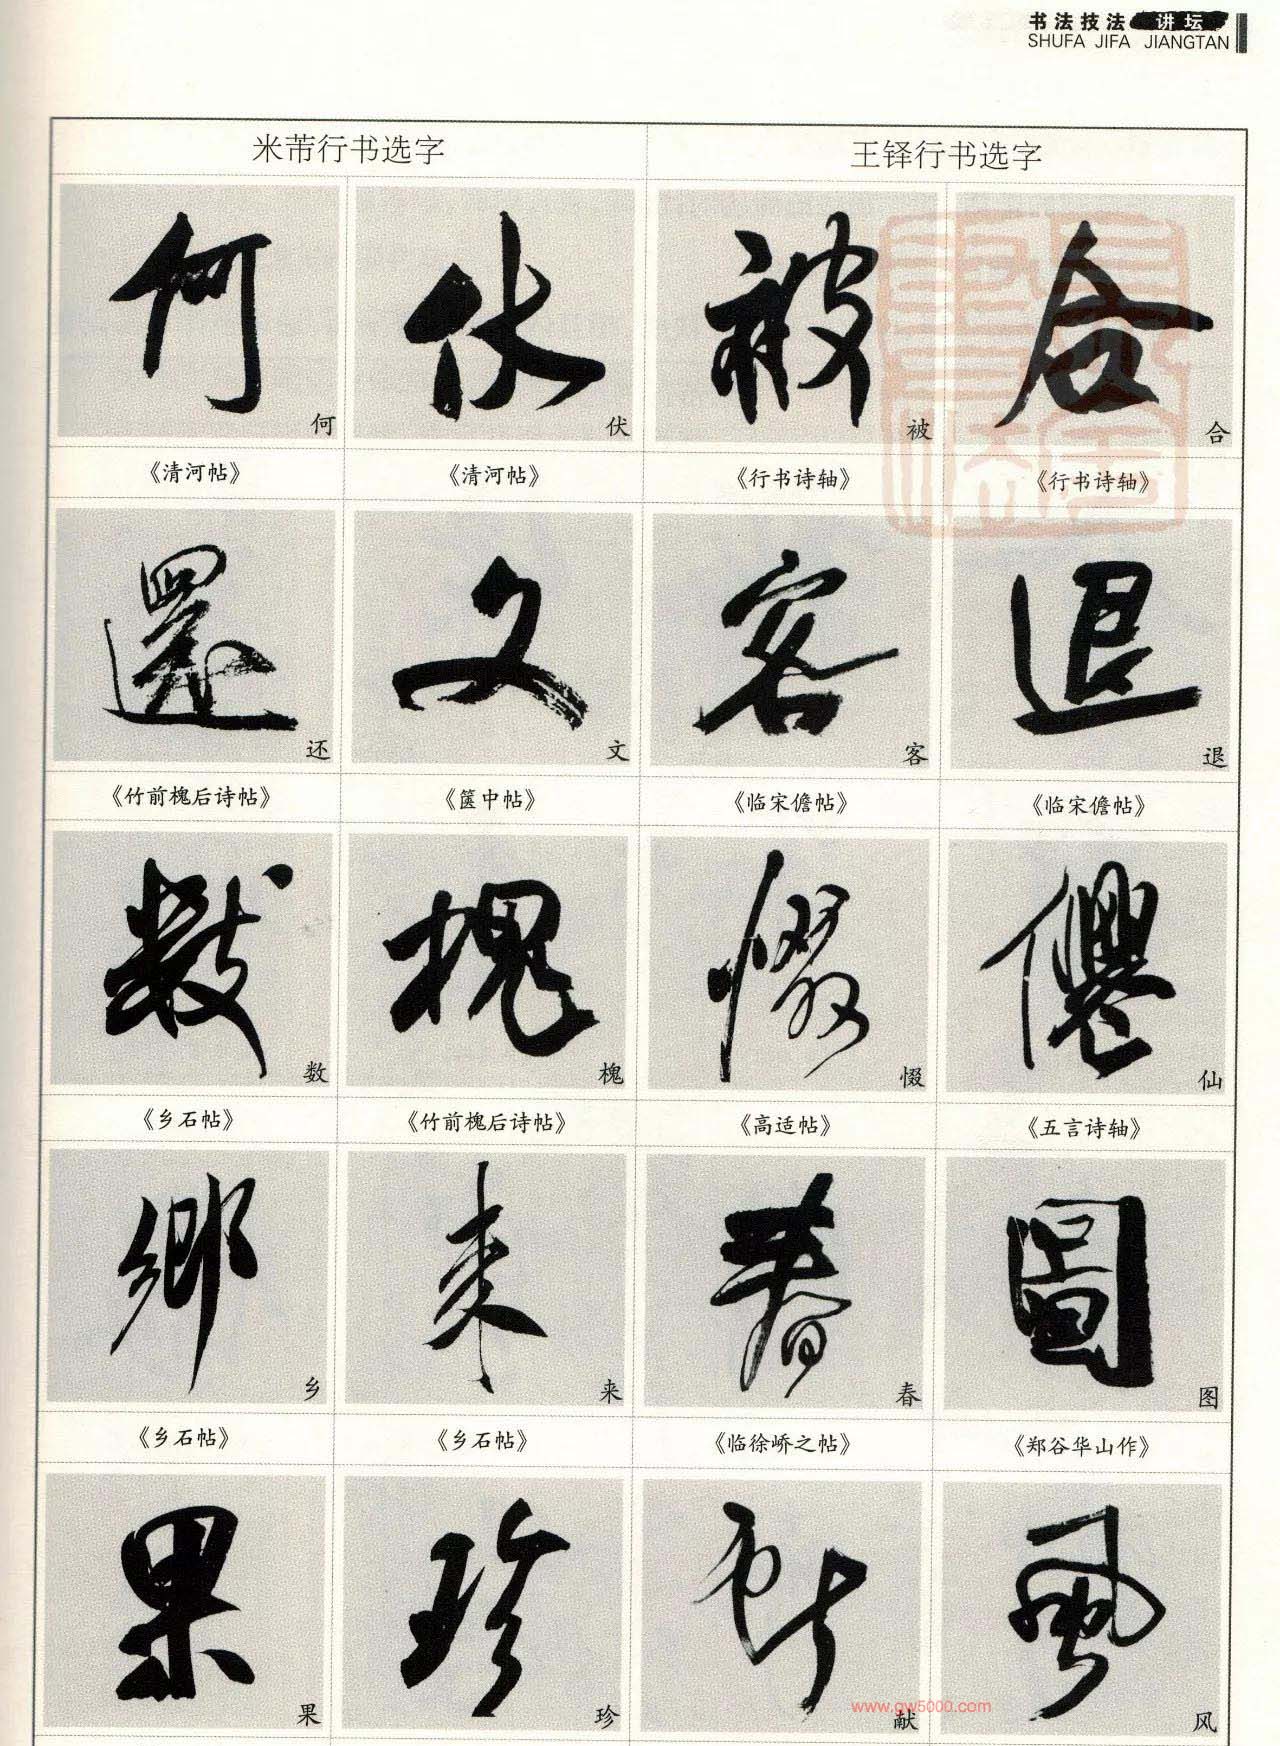 书法技法 讲坛
SHUFA JIFA JIANGTAN
米芾行书选字 王铎行书选字
何 伏 被 合
《清河帖》 《清河帖》 《行书诗轴》 《行书诗轴》
还 文 客 退
《竹前槐后诗帖》 《箧中帖》 《临宋儋帖》 《临宋儋帖》
数 槐 惙 仙
《乡石帖》 《竹前槐后诗帖》 《高适帖》 《五言诗轴》
乡 来 春 图
《乡石帖》 《乡石帖》 《临徐峤之帖》 《郑谷华山作》
果 珍 献 风
www.gw5000.com